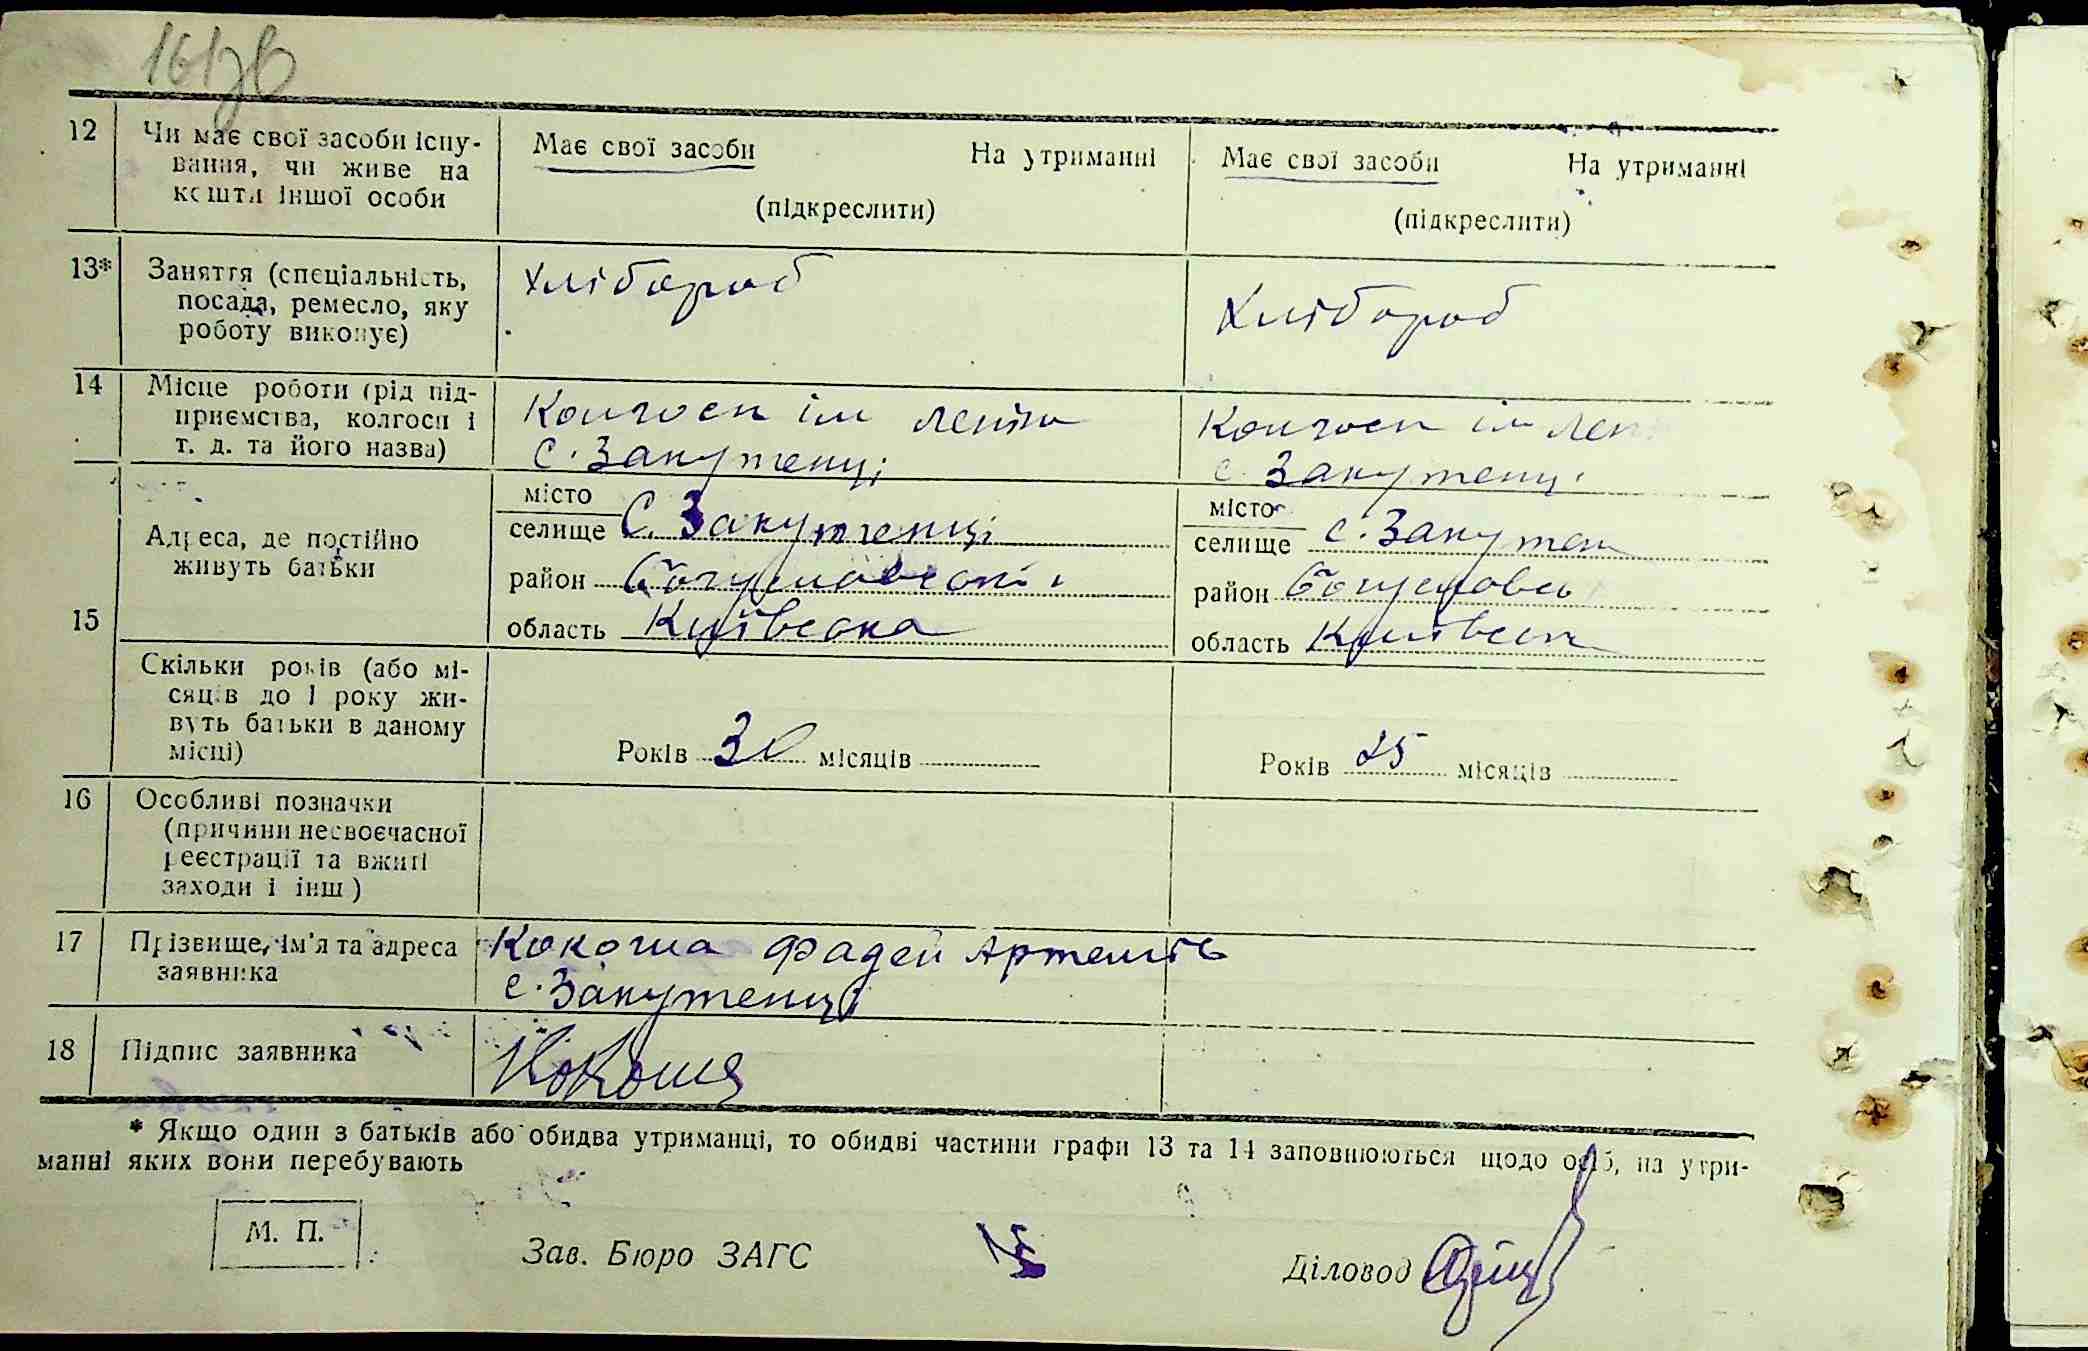 161зв
12 Чи має свої засоби існу- Має свої засоби На утриманні Має свої засоби На утриманні
вання, чи живе на
кошти іншої особи (підкреслити) (підкреслити)
13* Заняття (спеціальність, Хлібороб Хлібороб
посада, ремесло, яку
роботу виконує)
14 Місце роботи (рід під- Колгосп ім Леніна Колгосп ім Лен
приємства, колгосп і с. Закутенці с. Закутенц
т. д. та його назва)
15 Адреса, де постійно місто місто
живуть батьки селище С. Закутенці селище с. Закутен
район Богуславський район Богуславсь
область Київська область Київськ
Скільки років (або мі-
сяців до 1 року жи-
вуть батьки в даному
місці) Років 30 місяців Років 25 місяців
16 Особливі позначки
(причини несвоєчасної
реєстрації та вжиті
заходи і інш)
17 Прізвище, ім'я та адреса Кокоша Фадей Артемів
заявника с. Закутенці
18 Підпис заявника Кокоша
* Якщо один з батьків або обидва утриманці, то обидві частини графи 13 та 14 заповнюються щодо осіб, на утри-
манні яких вони перебувають
М. П. Зав. Бюро ЗАГС Діловод